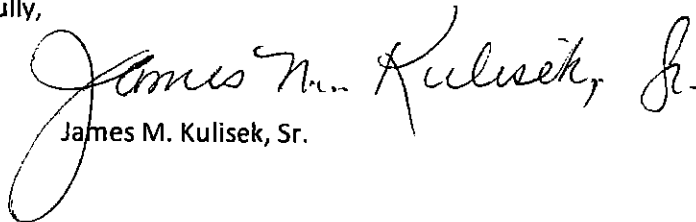 ully,
James M. Kulisek, Sr.
James M. Kulisek, Sr.